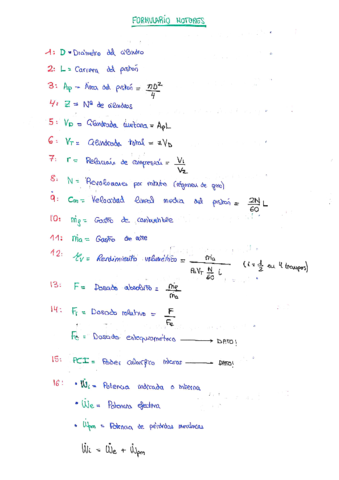 FORMULARIO MOTORES
1: D = Diámetro del cilindro
2: L = Carrera del pistón
3: Ap = Área del pistón = πD²/4
4: Z = Nº de cilindros
5: VD = Cilindrada unitaria = ApL
6: VT = Cilindrada total = zVD
7: r = Relación de compresión = V1/V2
8: N = Revoluciones por minuto (régimen de giro)
9: cm = Velocidad lineal media del pistón = 2N/60 L
10: ṁf = Gasto de combustible
11: ṁa = Gasto de aire
12: ηv = Rendimiento volumétrico = ṁa / (ρiVT N/60 i) (i = 1/2 en 4 tiempos)
13: F = Dosado absoluto = ṁf/ṁa
14: Fi = Dosado relativo = F/Fe
Fe = Dosado estequiométrico → DATO!
15: PCI = Poder calorífico inferior → DATO!
16: • Ẇi = Potencia indicada o interna
• Ẇe = Potencia efectiva
• Ẇpm = Potencia de pérdidas mecánicas
Ẇi = Ẇe + Ẇpm